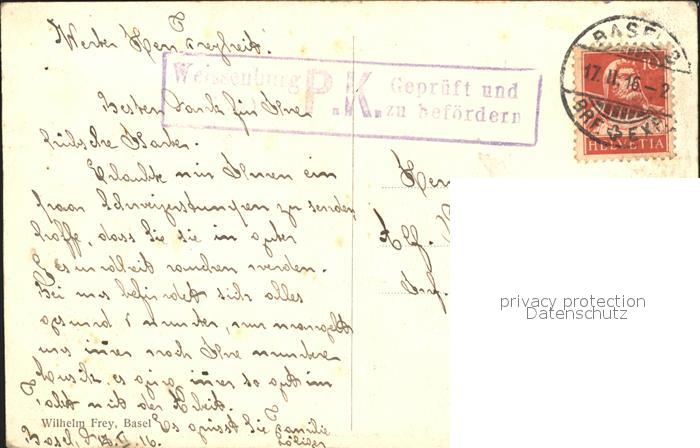 Werter Herr Freyheit!
Weissenburg P.K. Geprüft und
zu befördern
BASEL 2
17.II.16-2
BRF. EXP.
10
HELVETIA
Besten Dank für Ihre
hübsche Karte.
Erlaubte mir Ihnen ein
paar Schweizerstumpen zu senden
hoffe, dass Sie sie in guter
Gesundheit rauchen werden.
Bei uns befindet sich alles
gesund & munter, nur mangelt
uns immer noch Ihre muntere
Musik, es ging immer so gut im
Takt mit der Arbeit.
Es grüsst Sie Familie
Wilhelm Frey, Basel
Basel, 16.
Herrn
privacy protection
Datenschutz